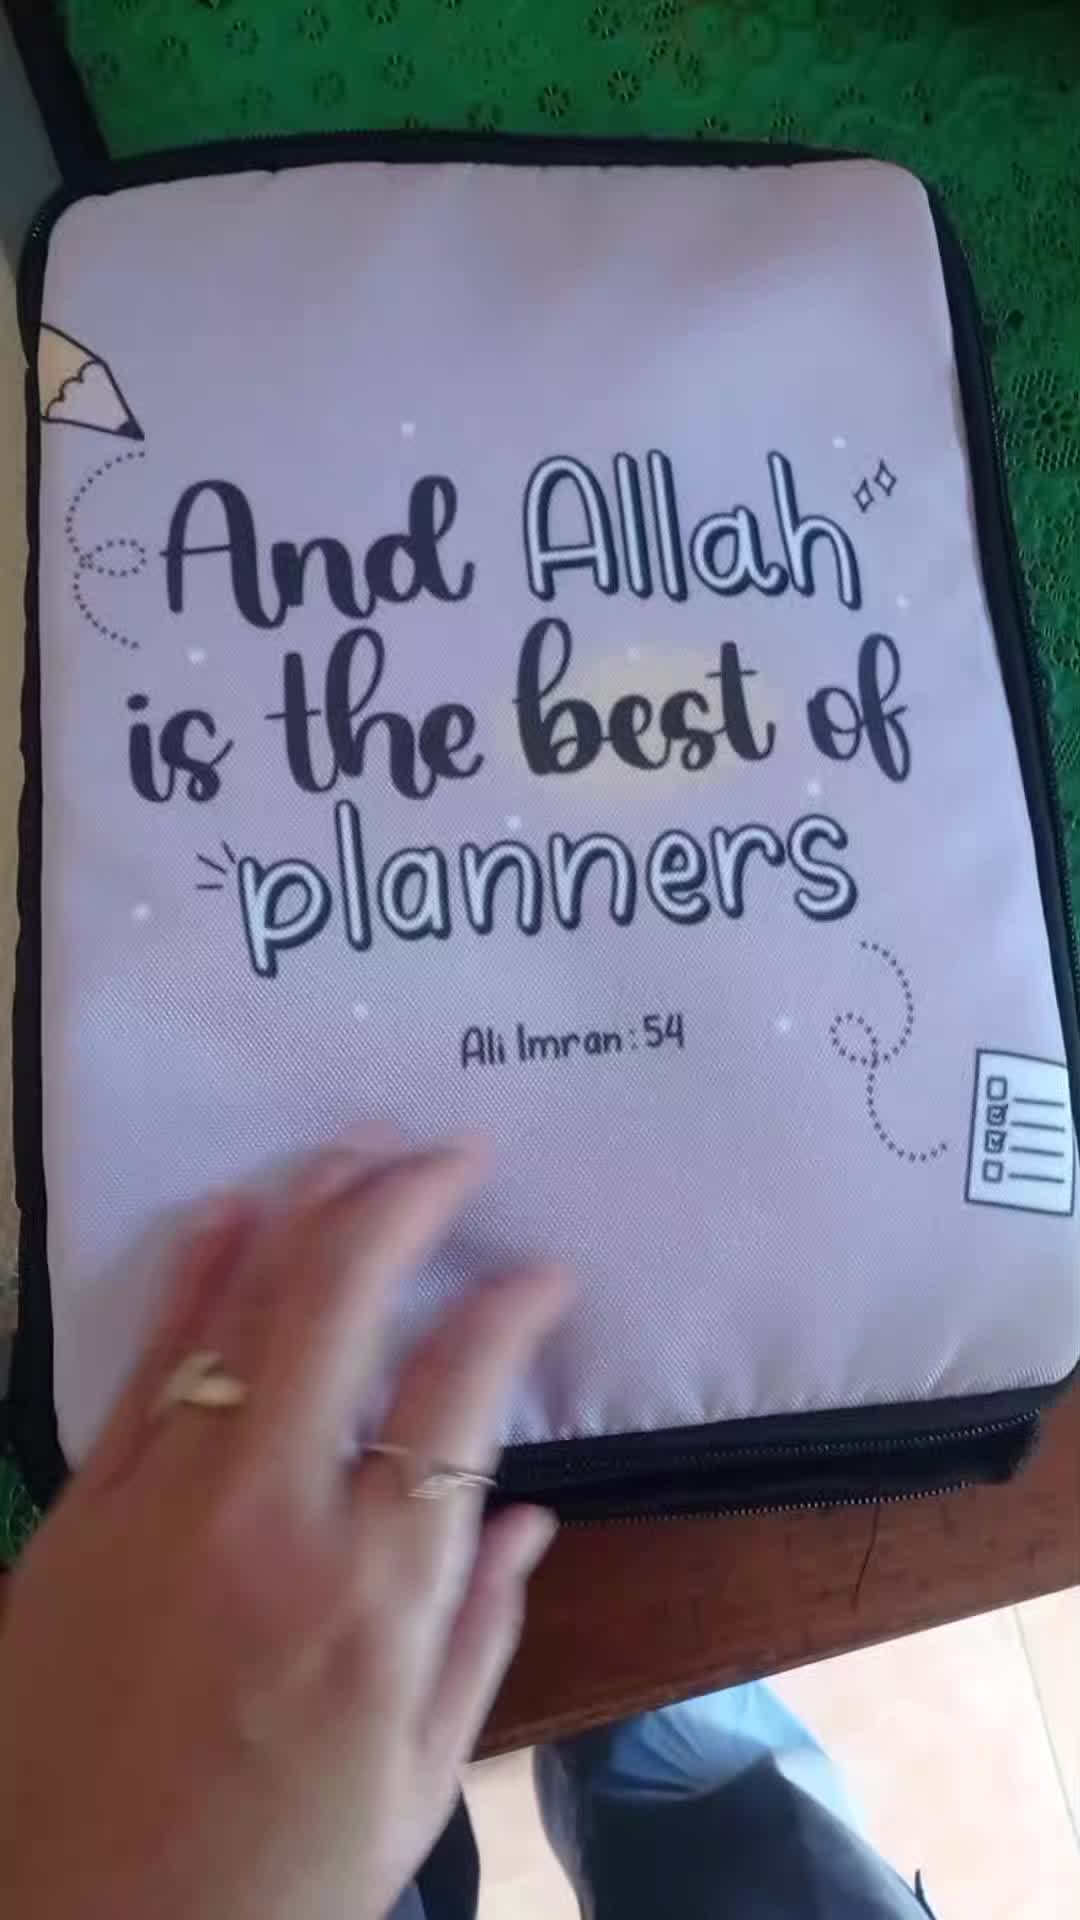 And Allah
is the best of
planners
Ali Imran : 54